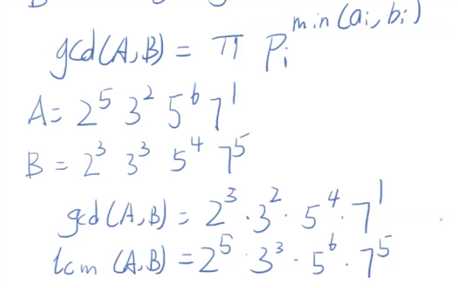 gcd(A,B) = π pᵢ^min(aᵢ, bᵢ)
A = 2⁵ 3² 5⁶ 7¹
B = 2³ 3³ 5⁴ 7⁵
gcd(A,B) = 2³ · 3² · 5⁴ · 7¹
lcm (A,B) = 2⁵ · 3³ · 5⁶ · 7⁵